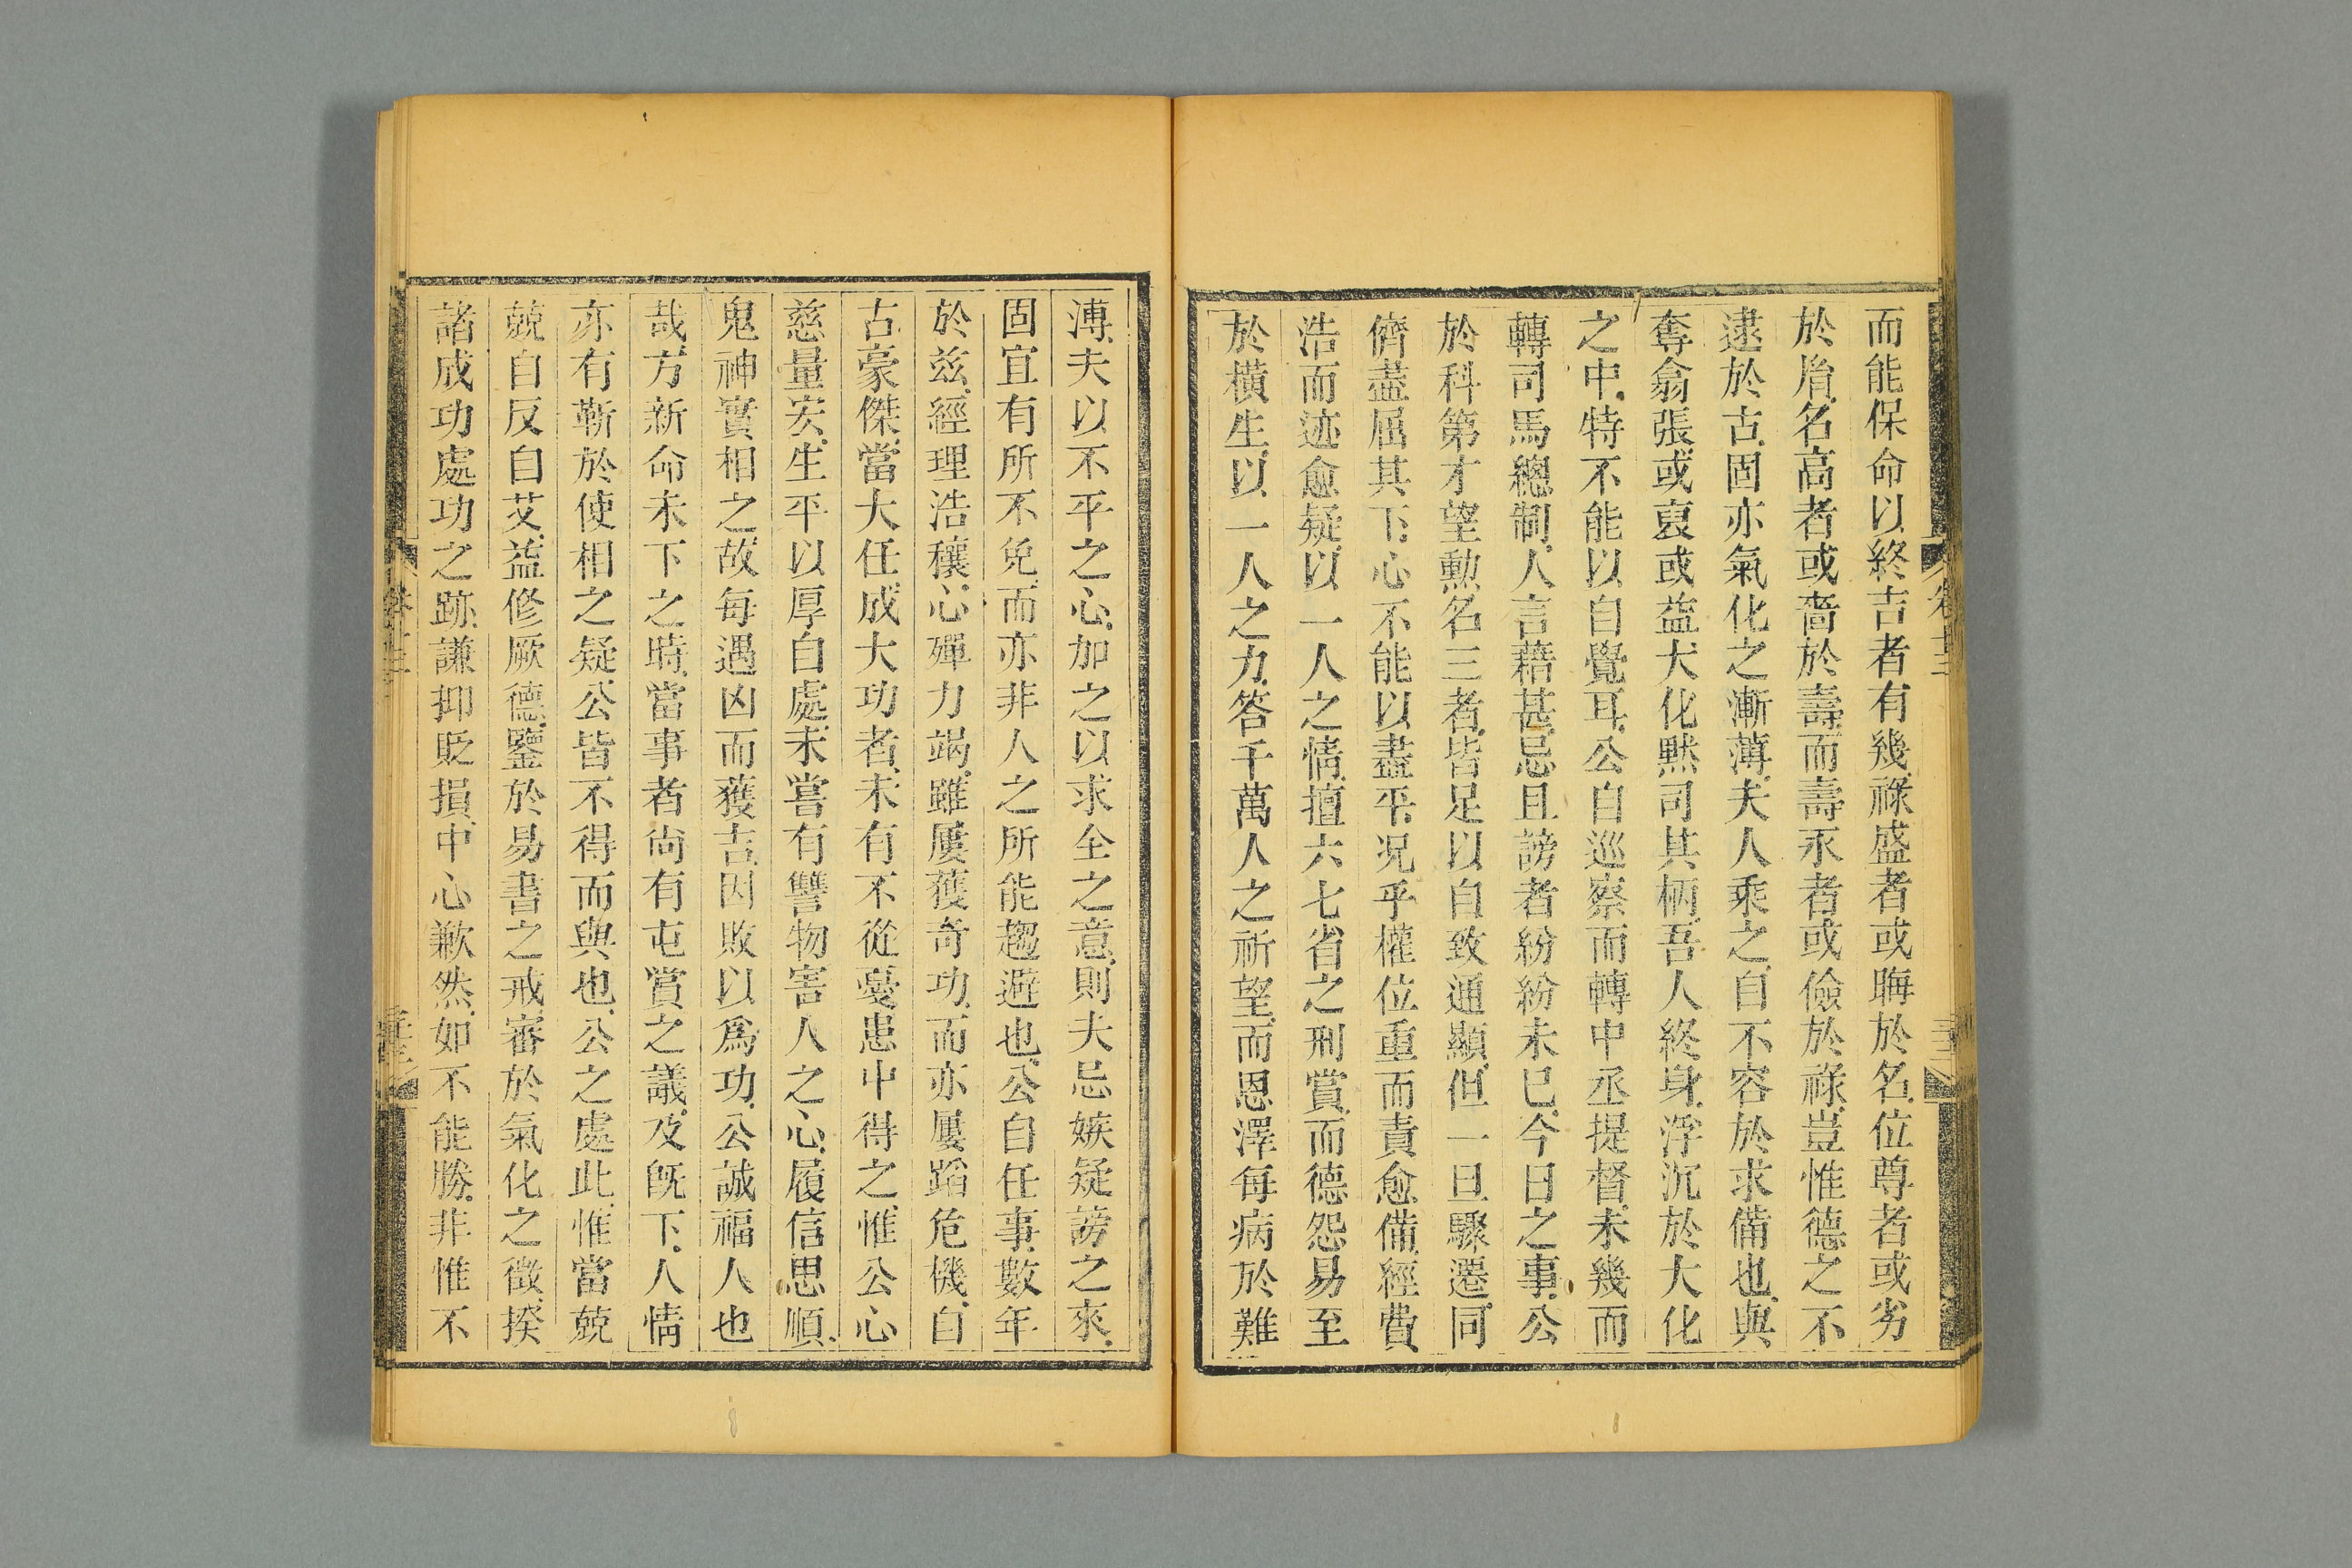 而能保命以終吉者有幾祿盛者或晦於名位尊者或劣
於胤名高者或嗇於壽而壽永者或儉於祿豈惟德之不
逮於古固亦氣化之漸薄夫人乘之自不容於求備也與
奪翕張或裒或益大化黙司其柄吾人終身浮沉於大化
之中特不能以自覺耳公自巡察而轉中丞提督未幾而
轉司馬總制人言藉甚忌且謗者紛紛未已今日之事公
於科第才望勲名三者皆足以自致通顯但一旦驟遷同
儕盡屈其下心不能以盡平况乎權位重而責愈備經費
浩而迹愈疑以一人之情擅六七省之刑賞而德怨易至
於橫生以一人之力答千萬人之祈望而恩澤每病於難
溥夫以不平之心加之以求全之意則夫忌嫉疑謗之來
固宜有所不免而亦非人之所能趨避也公自任事數年
於兹經理浩穰心殫力竭雖屢獲奇功而亦屢蹈危機自
古豪傑當大任成大功者未有不從憂患中得之惟公心
慈量宏生平以厚自處未嘗有讐物害人之心履信思順
鬼神實相之故每遇凶而獲吉因敗以爲功公誠福人也
哉方新命未下之時當事者尚有屯賞之議及旣下人情
亦有靳於使相之疑公皆不得而與也公之處此惟當兢
兢自反自艾益修厥德鑒於易書之戒審於氣化之微揆
諸成功處功之跡謙抑貶損中心歉然如不能勝非惟不
卷十三